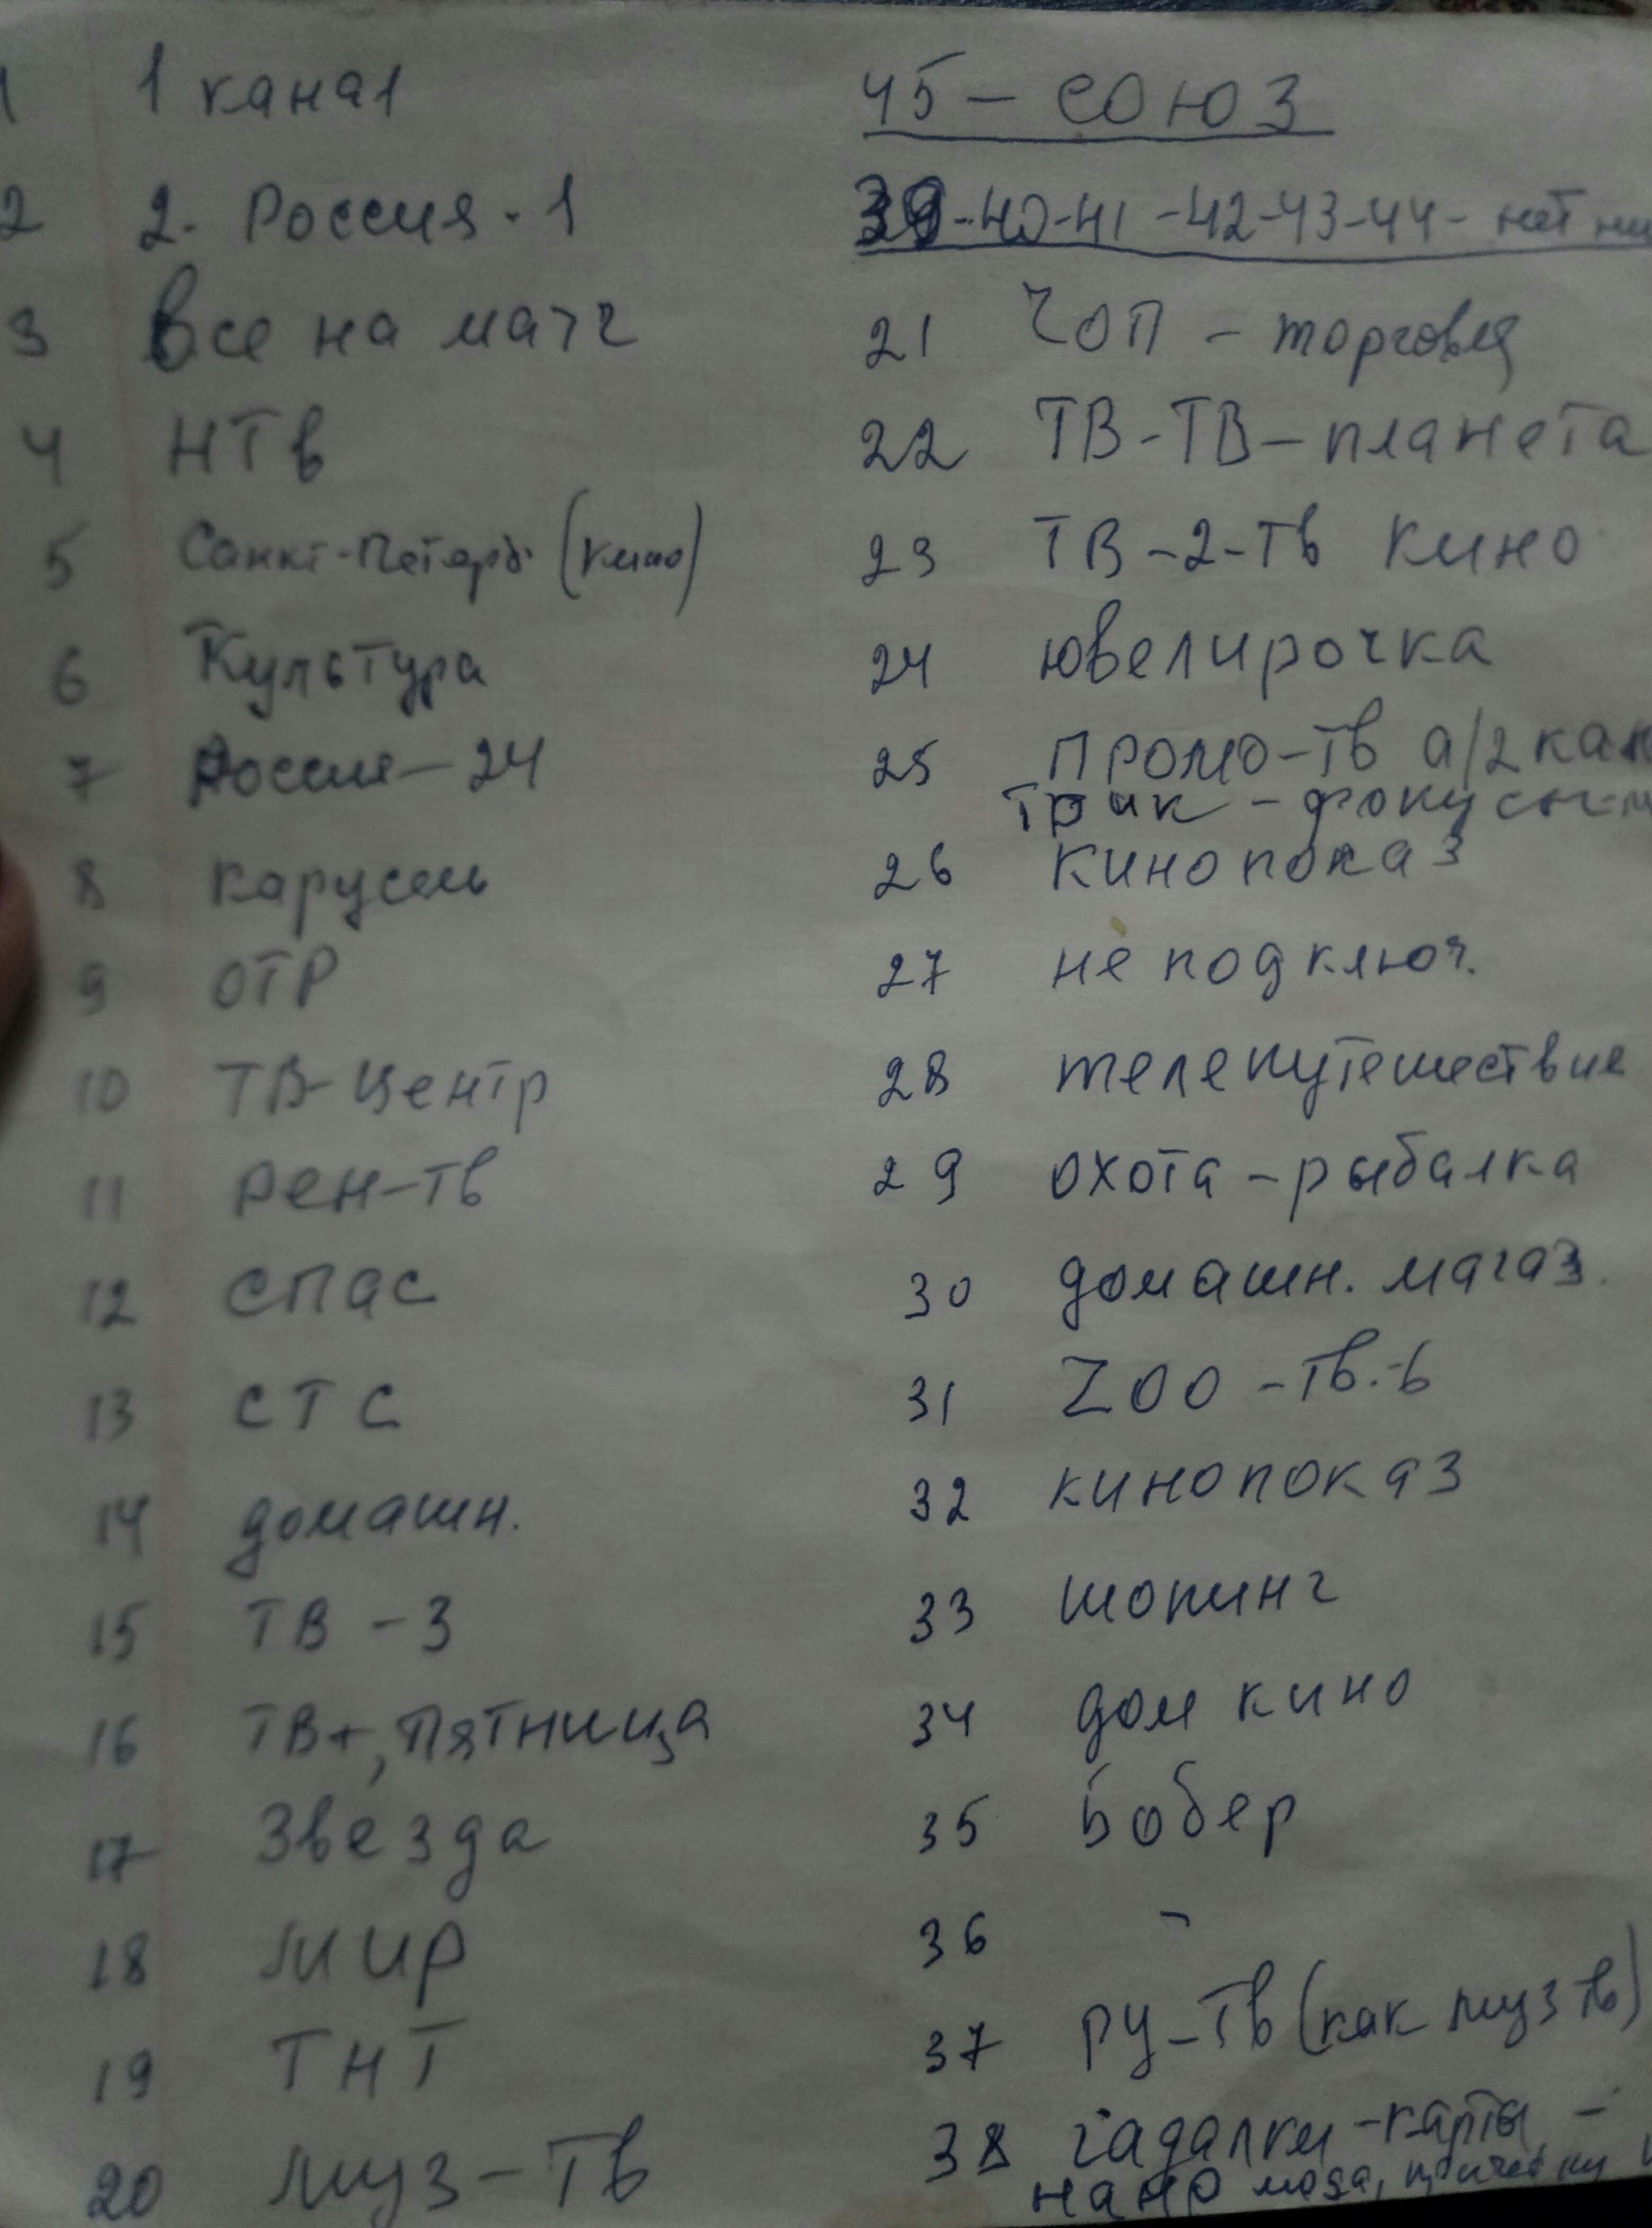 1 1 канал
2 2. Россия - 1
3 Все на матч
4 НТв
5 Санкт-Петерб. (кино)
6 Культура
7 Россия - 24
8 карусель
9 ОТР
10 ТВ-Центр
11 рен-тв
12 спас
13 СТС
14 домашн.
15 ТВ - 3
16 ТВ+, Пятница
17 Звезда
18 мир
19 ТНТ
20 муз - Тв
45 - союз
39-40-41-42-43-44- нет
21 ЧОП - торговля
22 ТВ-ТВ-планета
23 ТВ-2-Тв кино
24 ювелирочка
25 промо-тв а/2кан
Трюк - фокусы
26 кинопоказ
27 не подключ.
28 телепутешествие
29 охота - рыбалка
30 домашн. магаз.
31 ZOO - Тв.-6
32 кинопоказ
33 шопинг
34 дом кино
35 Бобер
36 -
37 РУ-Тв (как муз тв)
38 гадалки-карты -
напр мода,